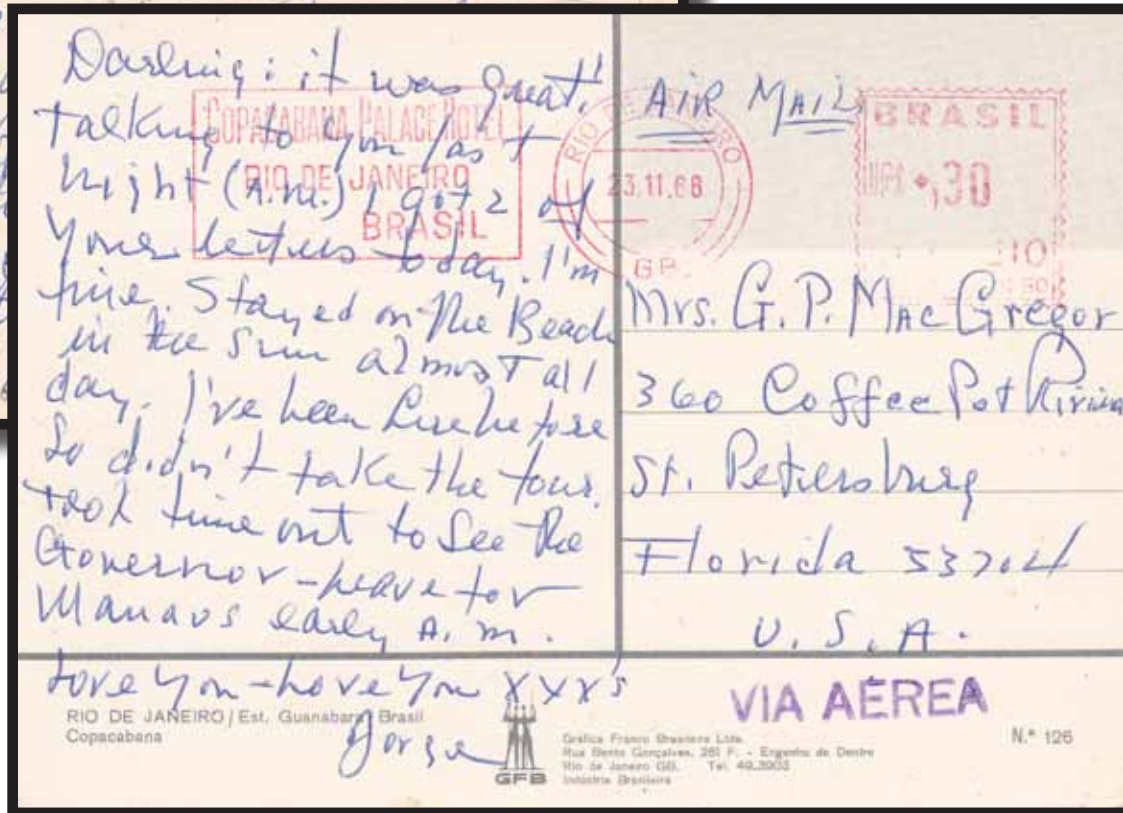 Darling: it was great!
talking to you last
night (A.M.) I got 2 of
your letters today. I'm
fine. Stayed on the Beach
in the Sun almost all
day. I've been here before
so didn't take the tour.
Took time out to see the
Governor - leave for
Manaus early A.m.
Love you - Love you XXX's
COPACABANA PALACE HOTEL
RIO DE JANEIRO
BRASIL
RIO DE JANEIRO
23.11.68
GB.
AIR MAIL
BRASIL
,30
Mrs. G. P. MacGregor
360 Coffee Pot
St. Petersburg
Florida 33704
U.S.A.
VIA AÉREA
RIO DE JANEIRO / Est. Guanabara / Brasil
Copacabana
GFB
Gráfica Franco Brasileira Ltda.
Rua Bento Gonçalves, 251 F. - Engenho de Dentro
Rio de Janeiro GB. Tel. 49.3903
Indústria Brasileira
N.º 126